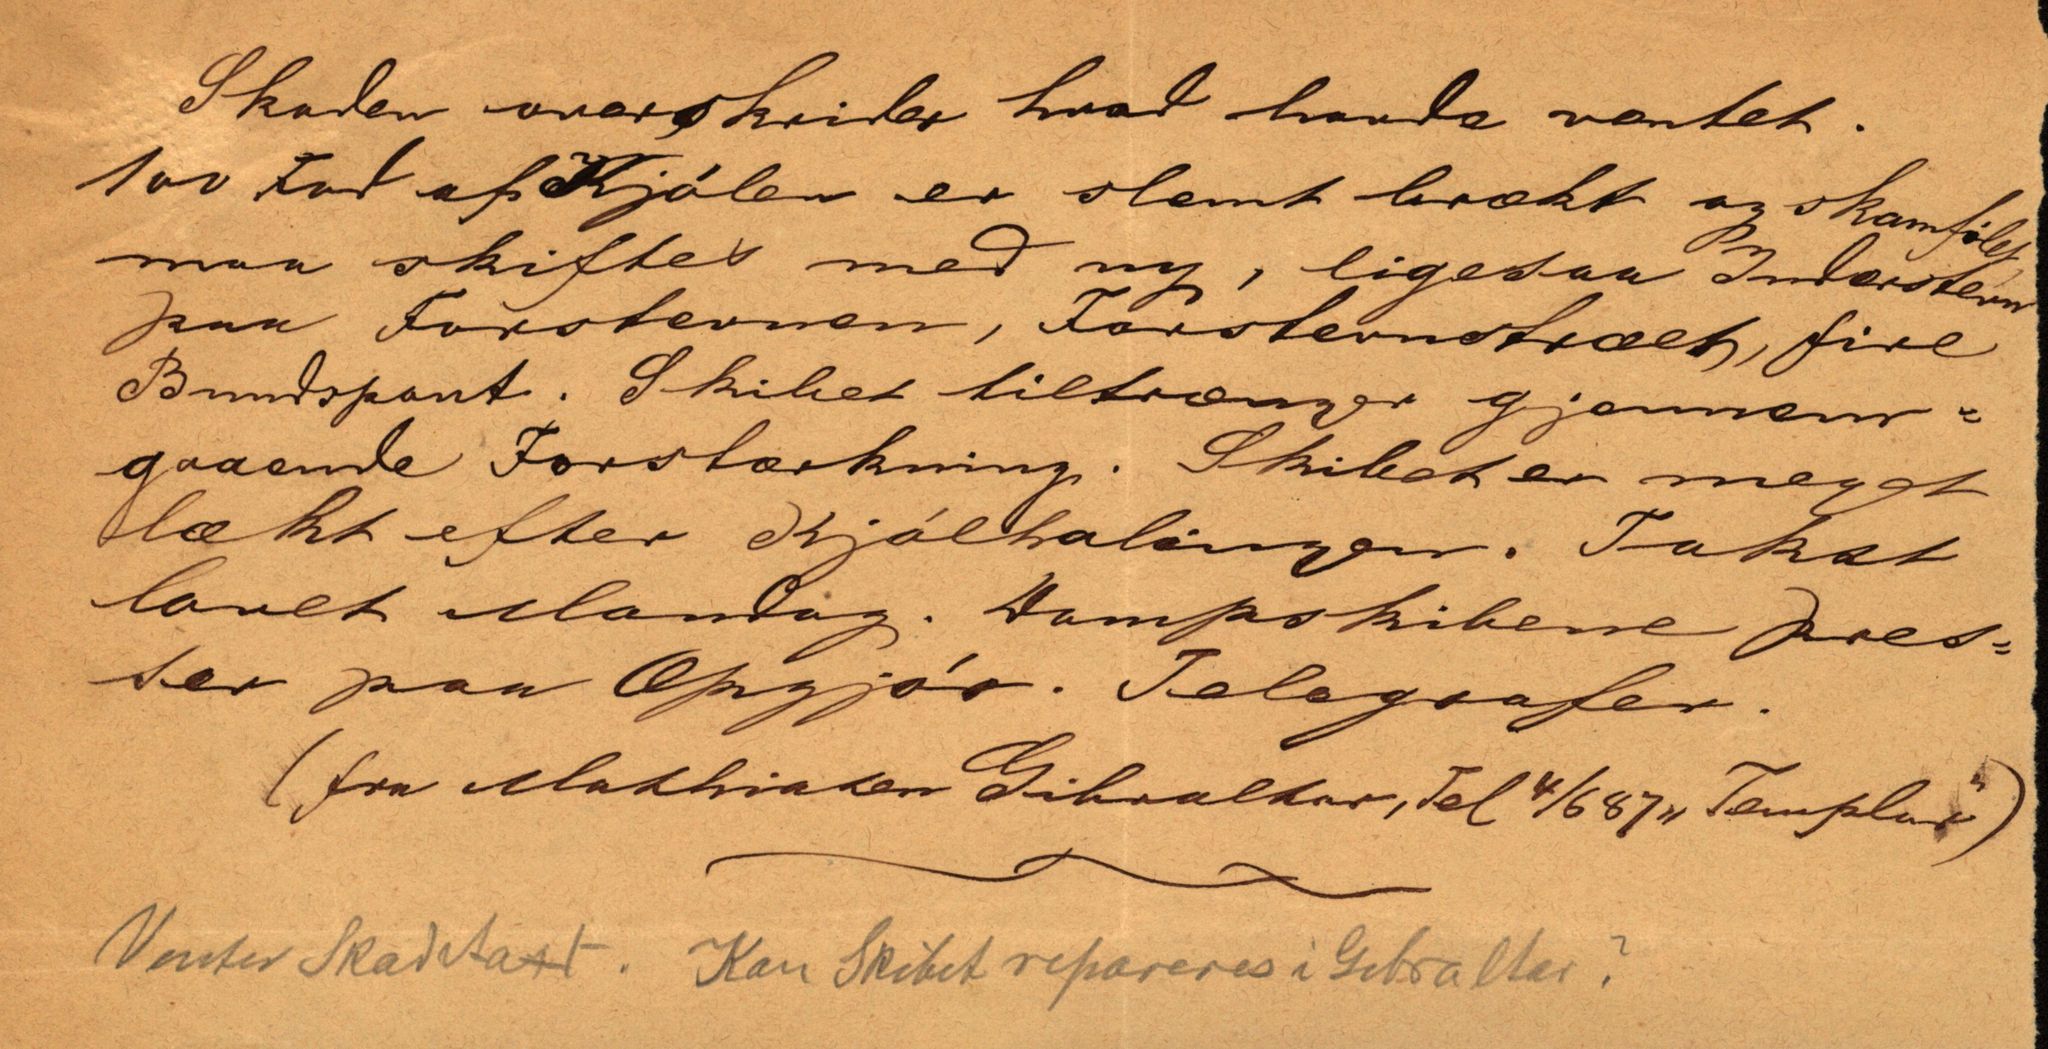 Skaden overskrider hvad havde ventet.
100 Fod af Kjölen er slemt brækt og skamfilet,
maa skiftes med ny, ligesaa Inderstevn
paa Forstevnen, Forstevnstræet, fire
Bundspant. Skibet tiltrænger gjennem=
gaaende Forstærkning. Skibet er meget
lækt efter Kjölhalingen. Takst
lovet Mandag. Dampskibene pres=
ser paa Opgjör. Telegrafer.
(fra Mathiasen Gibraltar, Tel 4/6 87 "Templar")
Venter Skadetaxt. Kan Skibet repareres i Gibraltar?